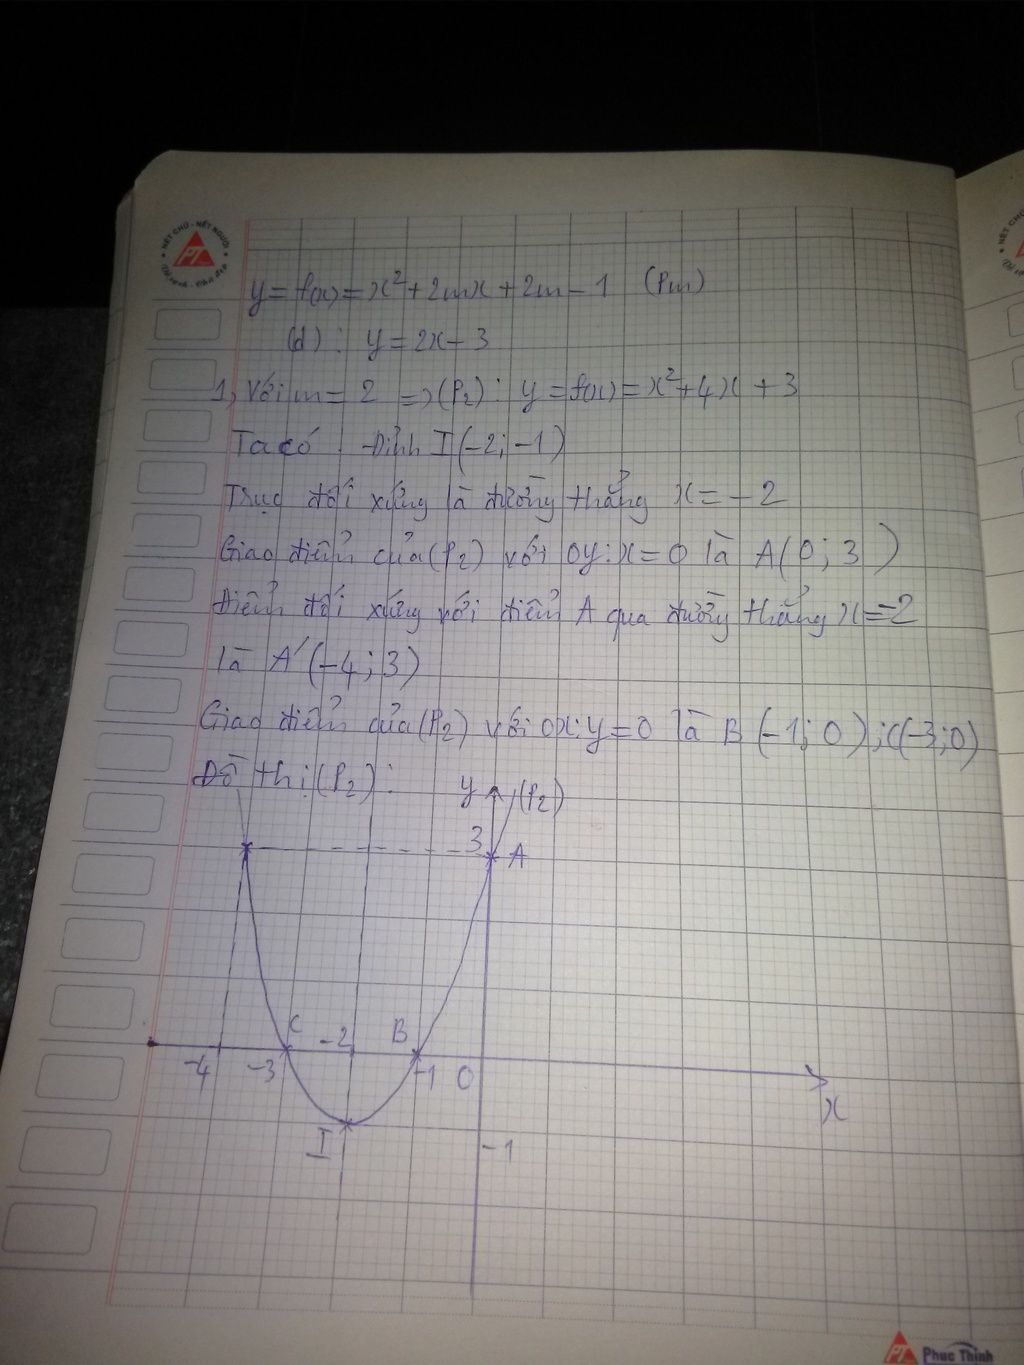 NÉT CHỮ - NẾT NGƯỜI
PT
y = f(x) = x² + 2mx + 2m - 1 (Pm)
(d): y = 2x - 3
1, Với m = 2 => (P₂): y = f(x) = x² + 4x + 3
Ta có . Đỉnh I(-2; -1)
Trục đối xứng là đường thẳng x = -2
Giao điểm của (P₂) với Oy: x = 0 là A(0; 3)
Điểm đối xứng với điểm A qua đường thẳng x = -2
là A'(-4; 3)
Giao điểm của (P₂) với Ox: y = 0 là B (-1; 0); C(-3; 0)
Đồ thị (P₂):
y (P₂)
3 A
C -2 B
-4 -3 -1 0
x
I -1
PT Phuc Thinh